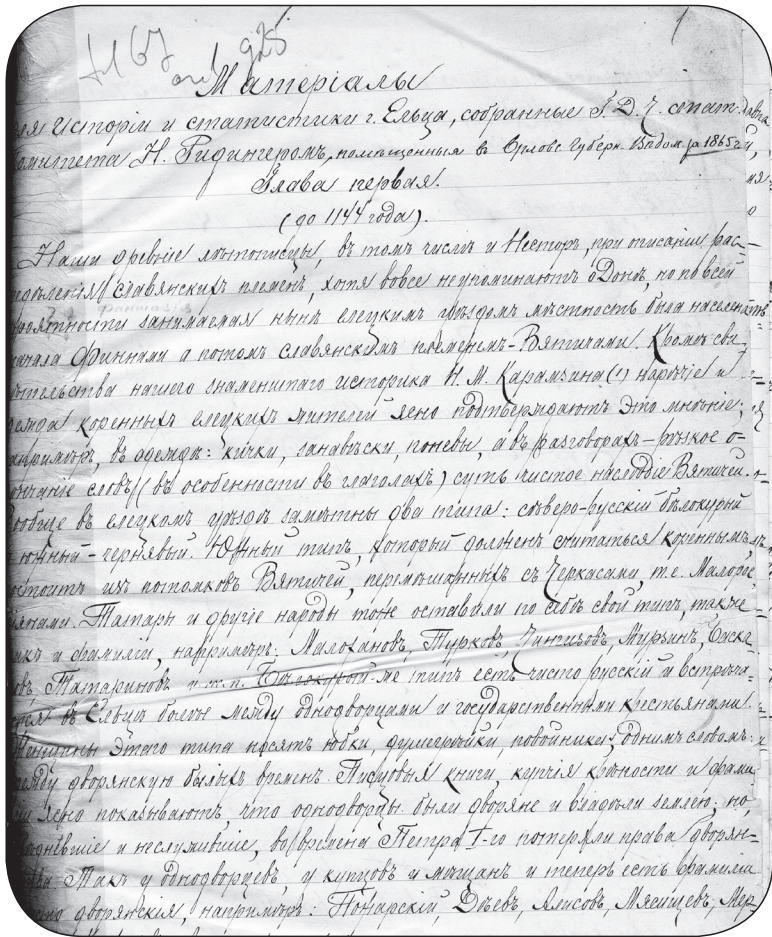 1
Матеріалы
для Исторіи и статистики г. Ельца, собранные Г. Д. Ч. стат.
Комитета Н. Ридингеромъ, помѣщенныя в Орловс. Губерн. Вѣдом. за 1865 г.
Глава первая.
(до 1144 года).
Наши древніе лѣтописцы, въ томъ числѣ и Несторъ, при описаніи рас-
предѣленія Славянскихъ племенъ, хотя вовсе не упоминаютъ о Донѣ, но по всей
вѣроятности занимаемая нынѣ елецкимъ уѣздомъ мѣстность была населена
сначала Финнами а потомъ славянскимъ племенемъ - Вятичами. Кромѣ сви-
дѣтельства нашего знаменитаго историка Н. М. Карамзина (1) нарѣчіе и
одежда коренныхъ елецкихъ жителей ясно подтверждаютъ это мнѣніе;
напримѣръ, въ одеждѣ: кички, занавѣски, поневы, а въ разговорахъ - рѣзкое о-
кончаніе словъ (въ особенности въ глаголахъ) суть чистое наслѣдіе Вятичей.
Вообще въ елецкомъ уѣздѣ замѣтны два типа: сѣверо-русскій бѣлокурый
и южный - чернявый. Южный типъ, который долженъ считаться кореннымъ,
состоитъ изъ потомковъ Вятичей, перемѣшанныхъ съ Черкасами, т.е. Малорос-
сіянами. Татары и другіе народы тоже оставили по себѣ свой типъ, также
какъ и фамиліи, напримѣръ: Малахановъ, Турковъ, Чингизовъ, Мурзинъ, Баска-
ковъ, Татариновъ и т. п. Бѣлокурой-же типъ есть чисто русскій и встрѣча-
ется въ Ельцѣ болѣе между однодворцами и государственными крестьянами.
Женщины этаго типа носятъ юбки, душегрѣйки, повойники; однимъ словомъ:
одежду дворянскую былыхъ временъ. Писцовыя книги, купчія крѣпости и фами-
ліи ясно показываютъ, что однодворцы были дворяне и владѣли землею; но,
обѣднѣвшіе и неслужившіе, во времена Петра I-го потеряли права дворян-
ства. Такъ у однодворцевъ, у купцовъ и мѣщанъ и теперь есть фамиліи
дворянскія, напримѣръ: Пожарскій, Дѣевъ, Алисовъ, Мясищевъ, Мер-